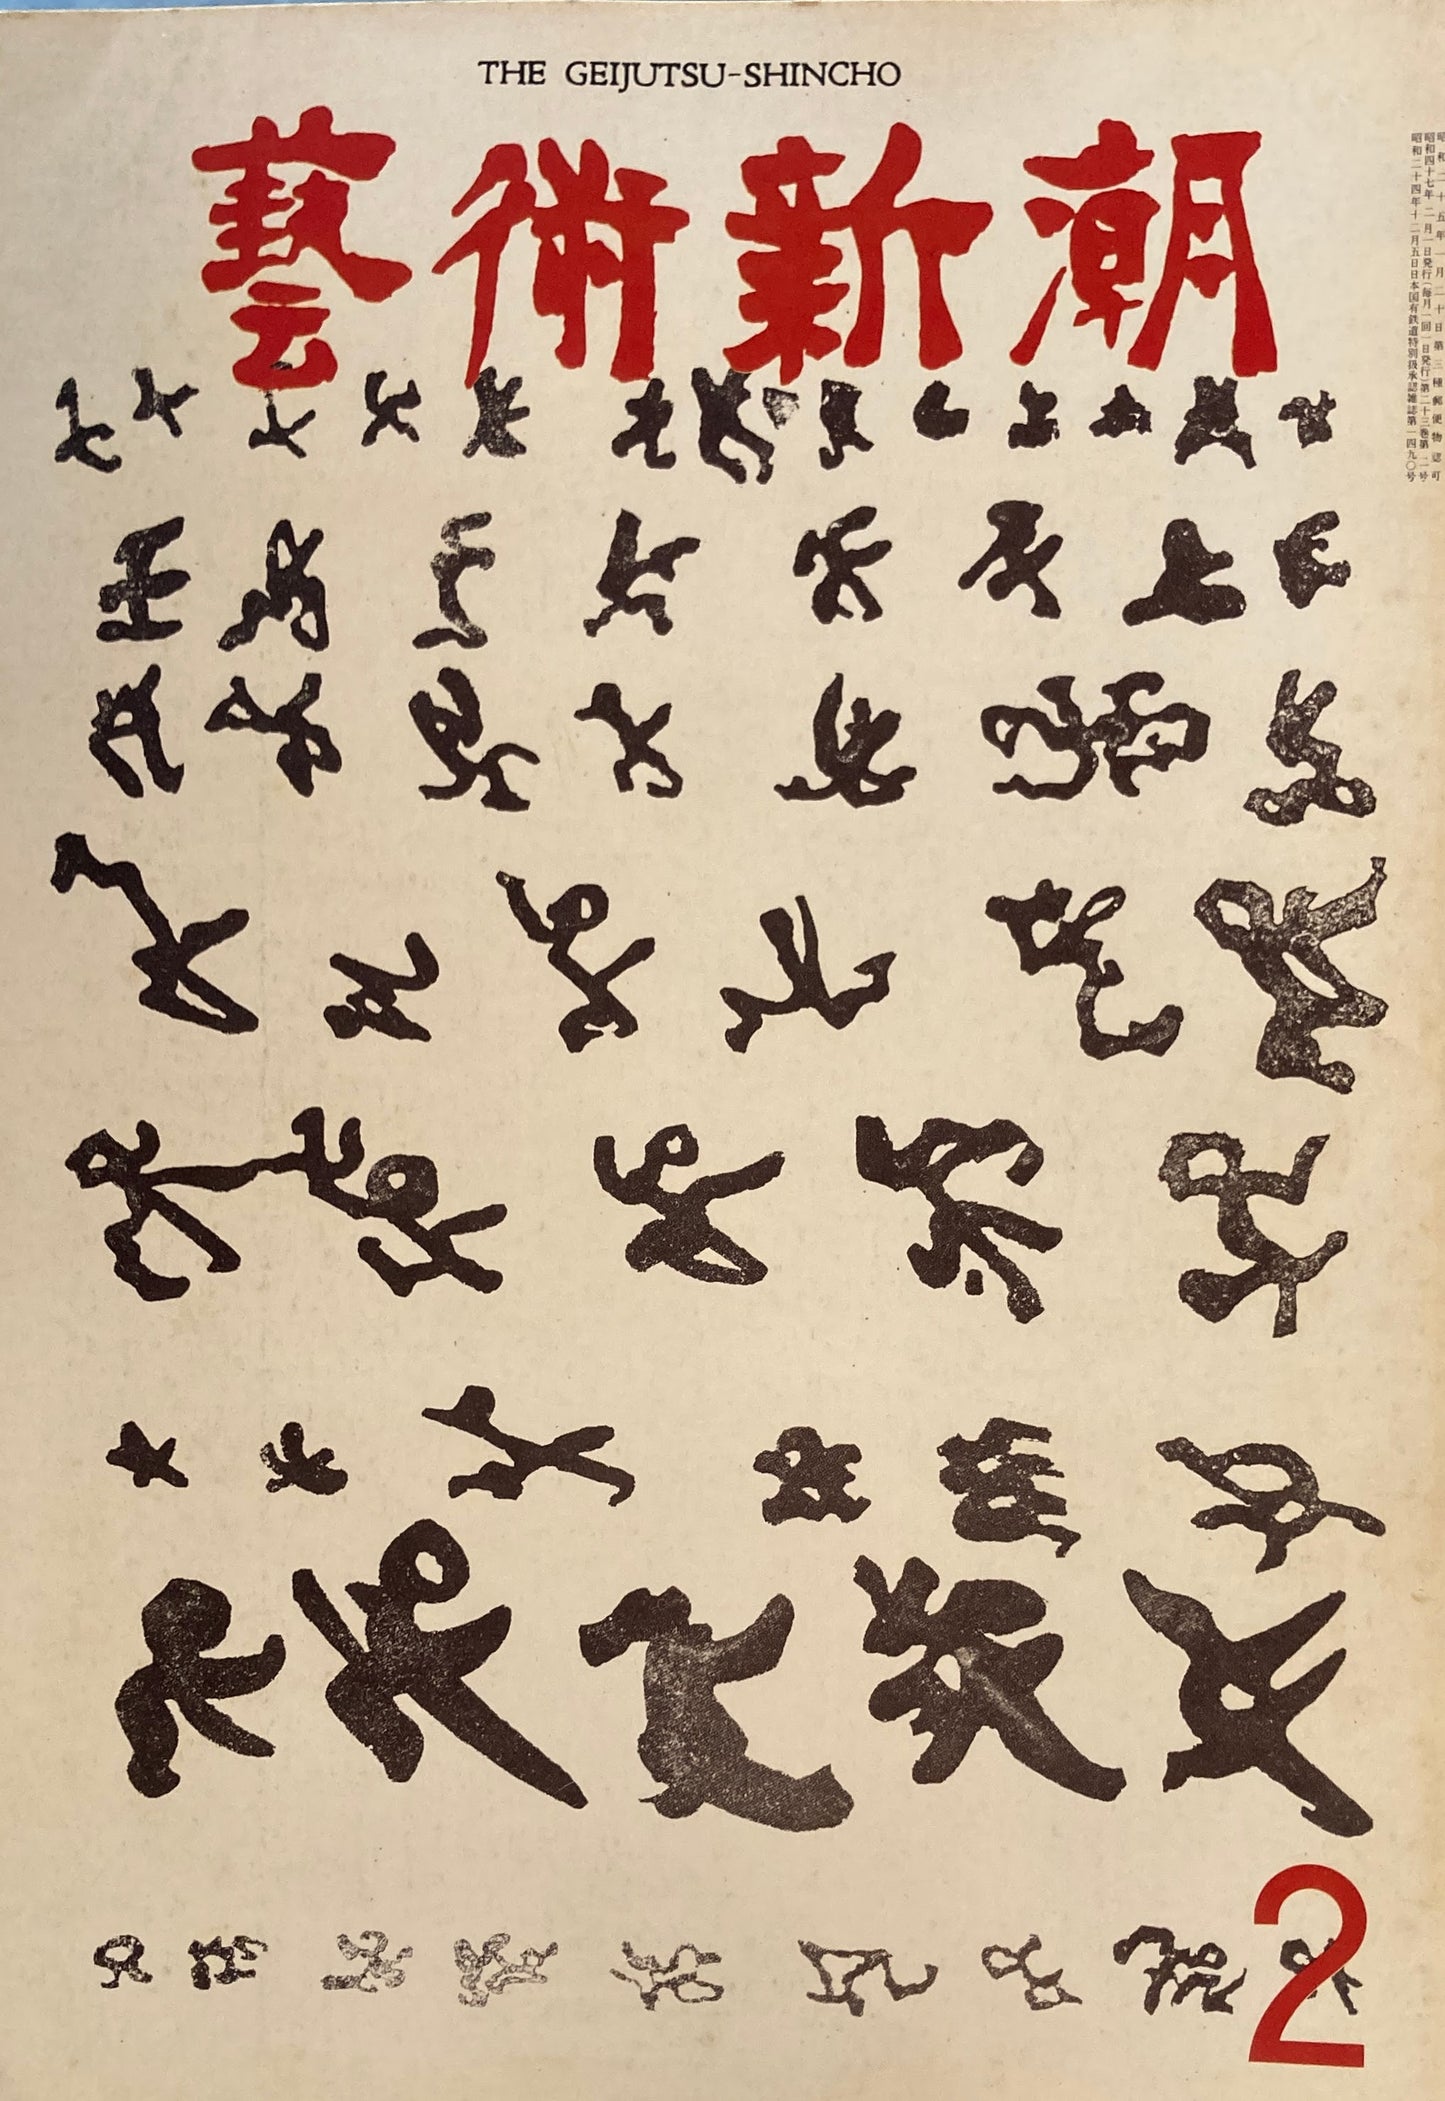 THE GEIJUTSU-SHINCHO
藝術新潮
昭和二十五年一月二十日第三種郵便物認可
昭和四十七年二月一日発行(毎月一回一日発行)第二十三巻第二号
昭和二十四年十二月五日日本国有鉄道特別扱承認雑誌第一四九〇号
2